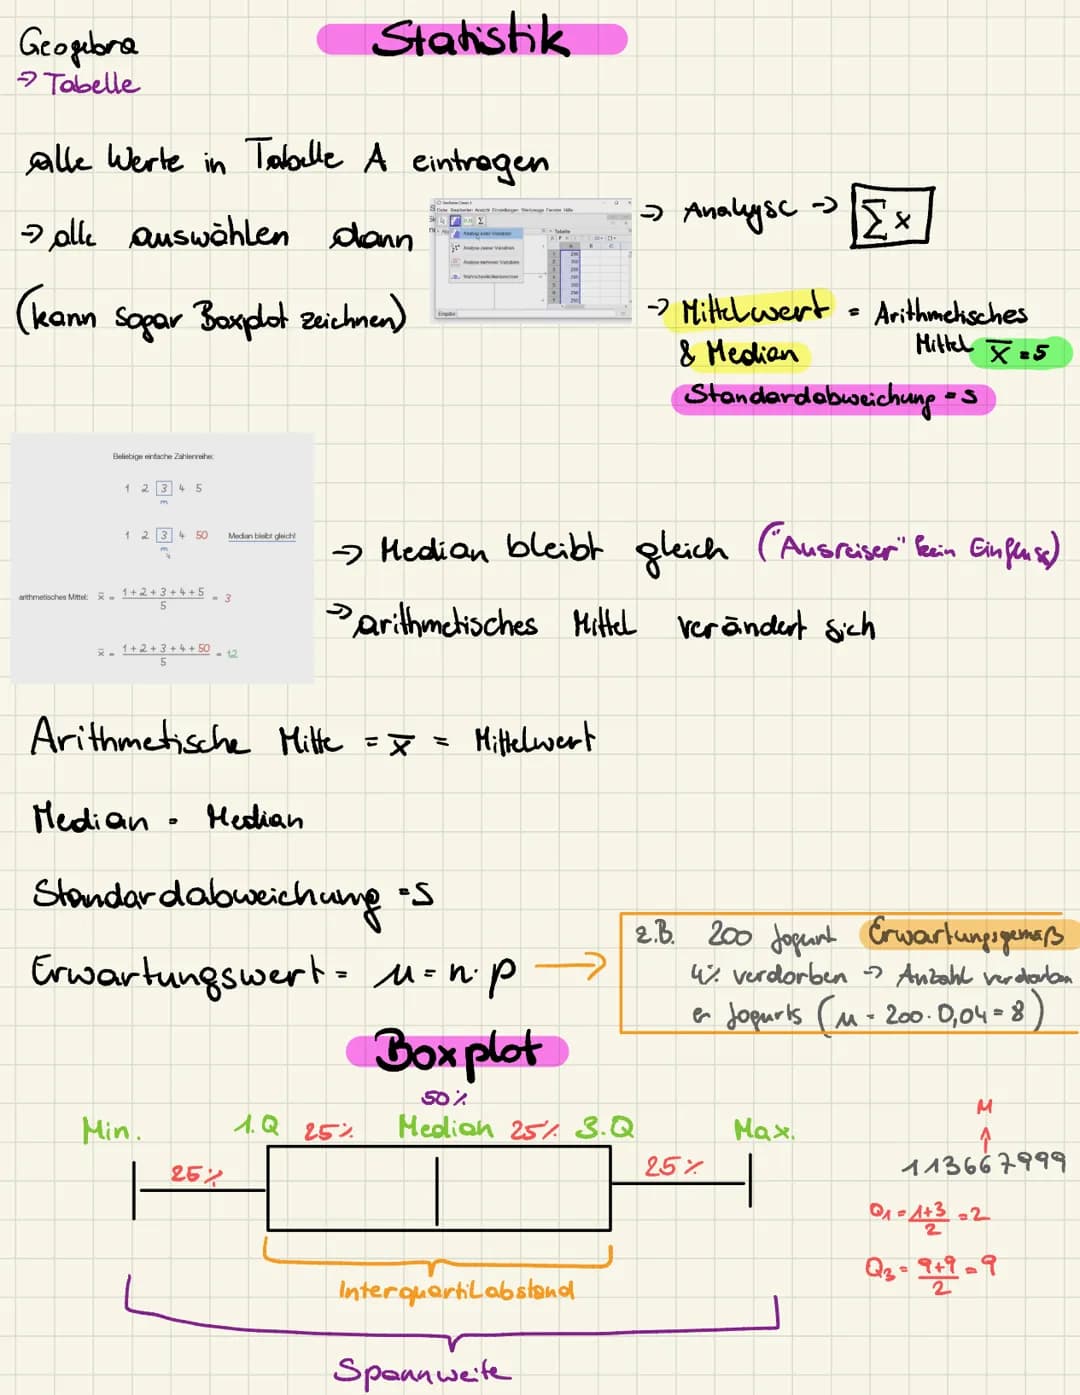 Geogebra
→ Tabelle
Statistik
alle Werte in Tabelle A eintragen
→ alle auswählen dann
(kann sogar Boxplot zeichnen)
→ Analyse → Σx
→ Mittelwert = Arithmetisches
& Median Mittel x̅ = 5
Standardabweichung = s
Datei Bearbeiten Ansicht Einstellungen Werkzeuge Fenster Hilfe
Analyse einer Variablen
Analyse zweier Variablen
Analyse mehrerer Variablen
Wahrscheinlichkeitsrechner
Tabelle
Eingabe:
Beliebige einfache Zahlenreihe:
1 2 3 4 5
m
1 2 3 4 50 Median bleibt gleich!
m
arithmetisches Mittel: x̅ = (1+2+3+4+5)/5 = 3
x̅ = (1+2+3+4+50)/5 = 12
→ Median bleibt gleich ("Ausreiser" kein Einfluss)
→ arithmetisches Mittel verändert sich
Arithmetische Mitte = x̅ = Mittelwert
Median = Median
Standardabweichung = S
Erwartungswert = μ = n · p →
z.B. 200 Jogurt Erwartungsgemäß
4% verdorben → Anzahl verdorben
er Jogurts (μ = 200 · 0,04 = 8)
Boxplot
50%
Min. 1.Q 25% Median 25% 3.Q Max.
25% 25%
Interquartilabstand
Spannweite
M
↑
113667999
Q1 = (1+3)/2 = 2
Q3 = (9+9)/2 = 9